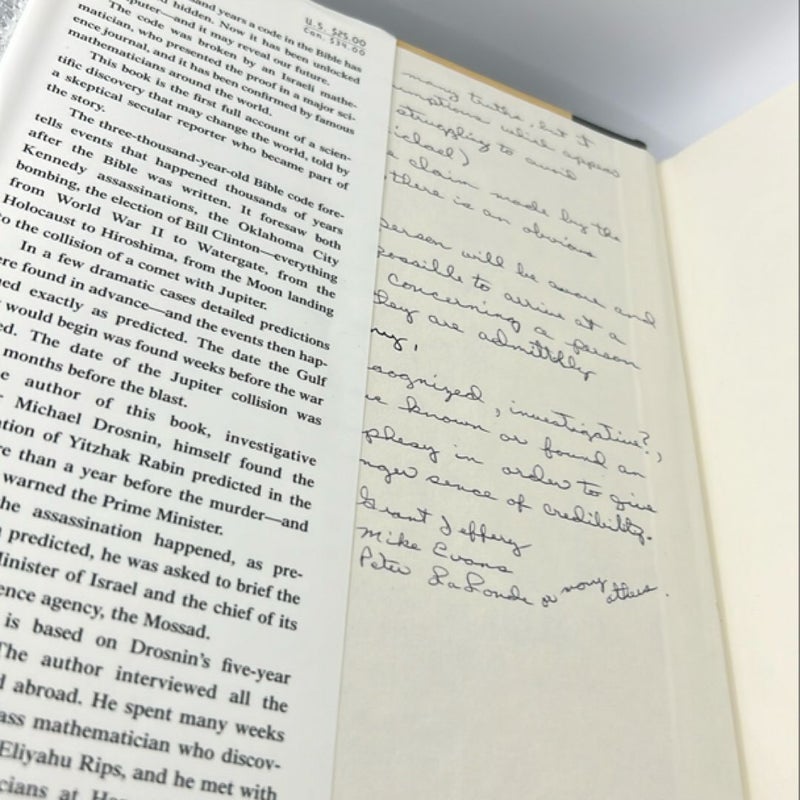 and years a code in the Bible has
hidden. Now it has been unlocked
puter—and it may reveal our future.
The code was broken by an Israeli mathe-
matician, who presented the proof in a major sci-
ence journal, and it has been confirmed by famous
mathematicians around the world.
This book is the first full account of a scien-
tific discovery that may change the world, told by
a skeptical secular reporter who became part of
the story.
The three-thousand-year-old Bible code fore-
tells events that happened thousands of years
after the Bible was written. It foresaw both
Kennedy assassinations, the Oklahoma City
bombing, the election of Bill Clinton—everything
from World War II to Watergate, from the
Holocaust to Hiroshima, from the Moon landing
to the collision of a comet with Jupiter.
In a few dramatic cases detailed predictions
ere found in advance—and the events then hap-
ned exactly as predicted. The date the Gulf
would begin was found weeks before the war
ed. The date of the Jupiter collision was
months before the blast.
e author of this book, investigative
r Michael Drosnin, himself found the
ation of Yitzhak Rabin predicted in the
re than a year before the murder—and
warned the Prime Minister.
he assassination happened, as pre-
predicted, he was asked to brief the
inister of Israel and the chief of its
ence agency, the Mossad.
is based on Drosnin's five-year
The author interviewed all the
d abroad. He spent many weeks
ass mathematician who discov-
Eliyahu Rips, and he met with
cians at
U.S. $25.00
Can. $34.00
many truths, but it
umptions which appear
struggling to avoid
ichael)
e claim made by the
there is an obvious
person will be aware and
possible to arrive at a
concerning a person
they are admittedly
ny,
ecognized, investigative?,
ve known or found an
phesy in order to give
nger sense of credibility.
Grant Jeffery
Mike Evans
Peter LaLonde or many others.